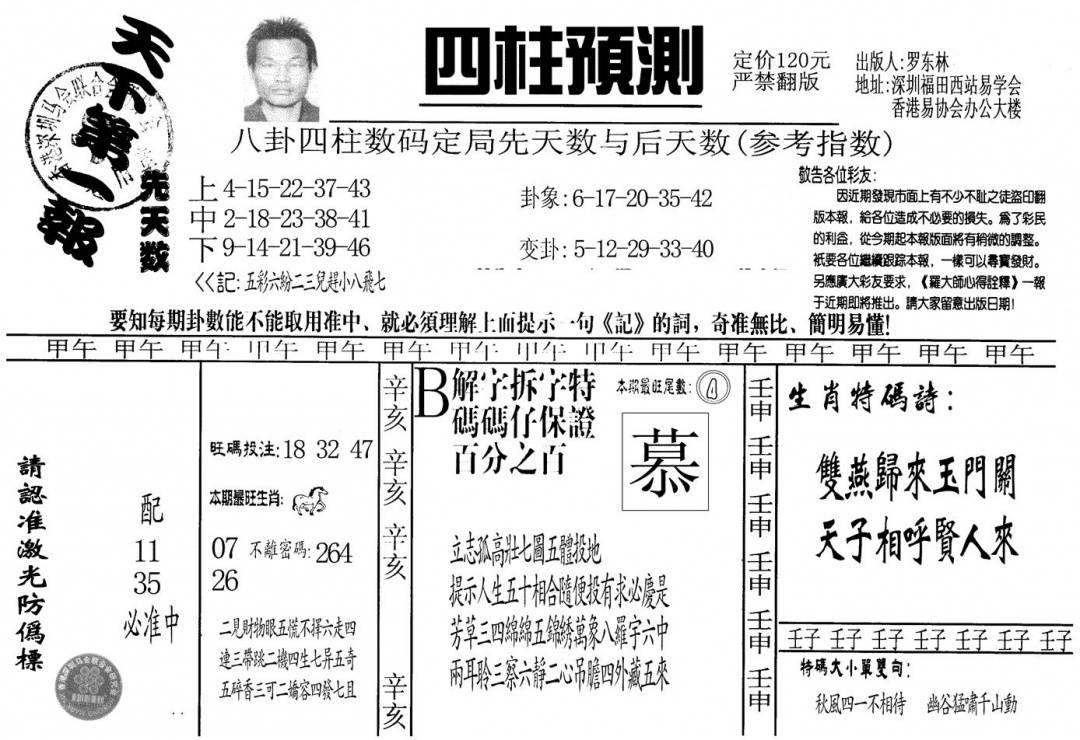 天下第一報
先天数
四柱預測
定价120元
严禁翻版
出版人:罗东林
地址:深圳福田西站易学会
香港易协会办公大楼
八卦四柱数码定局先天数与后天数(参考指数)
上 4-15-22-37-43
中 2-18-23-38-41
下 9-14-21-39-46
<<記: 五彩六紛二三兒趕小八飛七
卦象: 6-17-20-35-42
变卦: 5-12-29-33-40
敬告各位彩友:
因近期發現市面上有不少不耻之徒盜印翻
版本報，給各位造成不必要的損失。爲了彩民
的利益，從今期起本報版面將有稍微的調整。
衹要各位繼續跟踪本報，一樣可以尋寶發財。
另應廣大彩友要求，《羅大師心得詮釋》一報
于近期即將推出。請大家留意出版日期!
要知每期卦數能不能取用准中、就必須理解上面提示一句《記》的詞，奇准無比、簡明易懂!
甲午 甲午 甲午 甲午 甲午 甲午 甲午 甲午 甲午 甲午 甲午 甲午 甲午 甲午 甲午
請認准激光防僞標
配
11
35
必准中
旺碼投注: 18 32 47
本期最旺生肖:
07 不離密碼: 264
26
二見財物眼五慌不擇六走四
連三帶跳二機四生七昇五奇
五碎香三可二嬌容四發七且
辛亥
辛亥
辛亥
辛亥
B 解字拆字特
碼碼仔保證
百分之百
本期最旺尾數:
慕
立志孤高壯七圖五體投地
提示人生五十相合隨便投有求必慶是
芳草三四綿綿五錦綉萬象八羅宇六中
兩耳聆三察六靜二心吊膽四外藏五來
壬申
壬申
壬申
壬申
壬申
壬申
生肖特碼詩:
雙燕歸來玉門關
天子相呼賢人來
壬子 壬子 壬子 壬子 壬子 壬子 壬子
特碼大小單雙句:
秋風四一不相待 幽谷猛嘯千山動